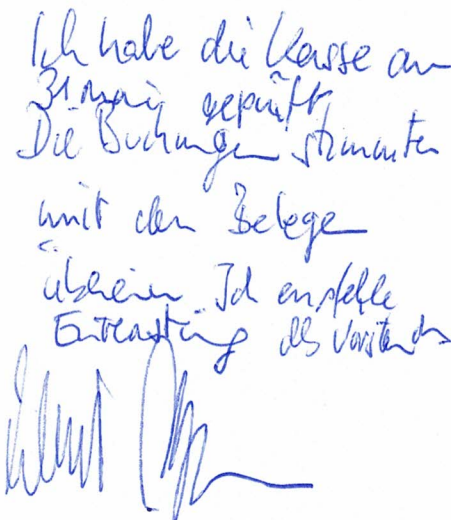 Ich habe die Kasse am
31 Mai geprüft
Die Buchungen stimmten
mit den Belegen
überein Ich empfehle
Entlastung des Vorstands